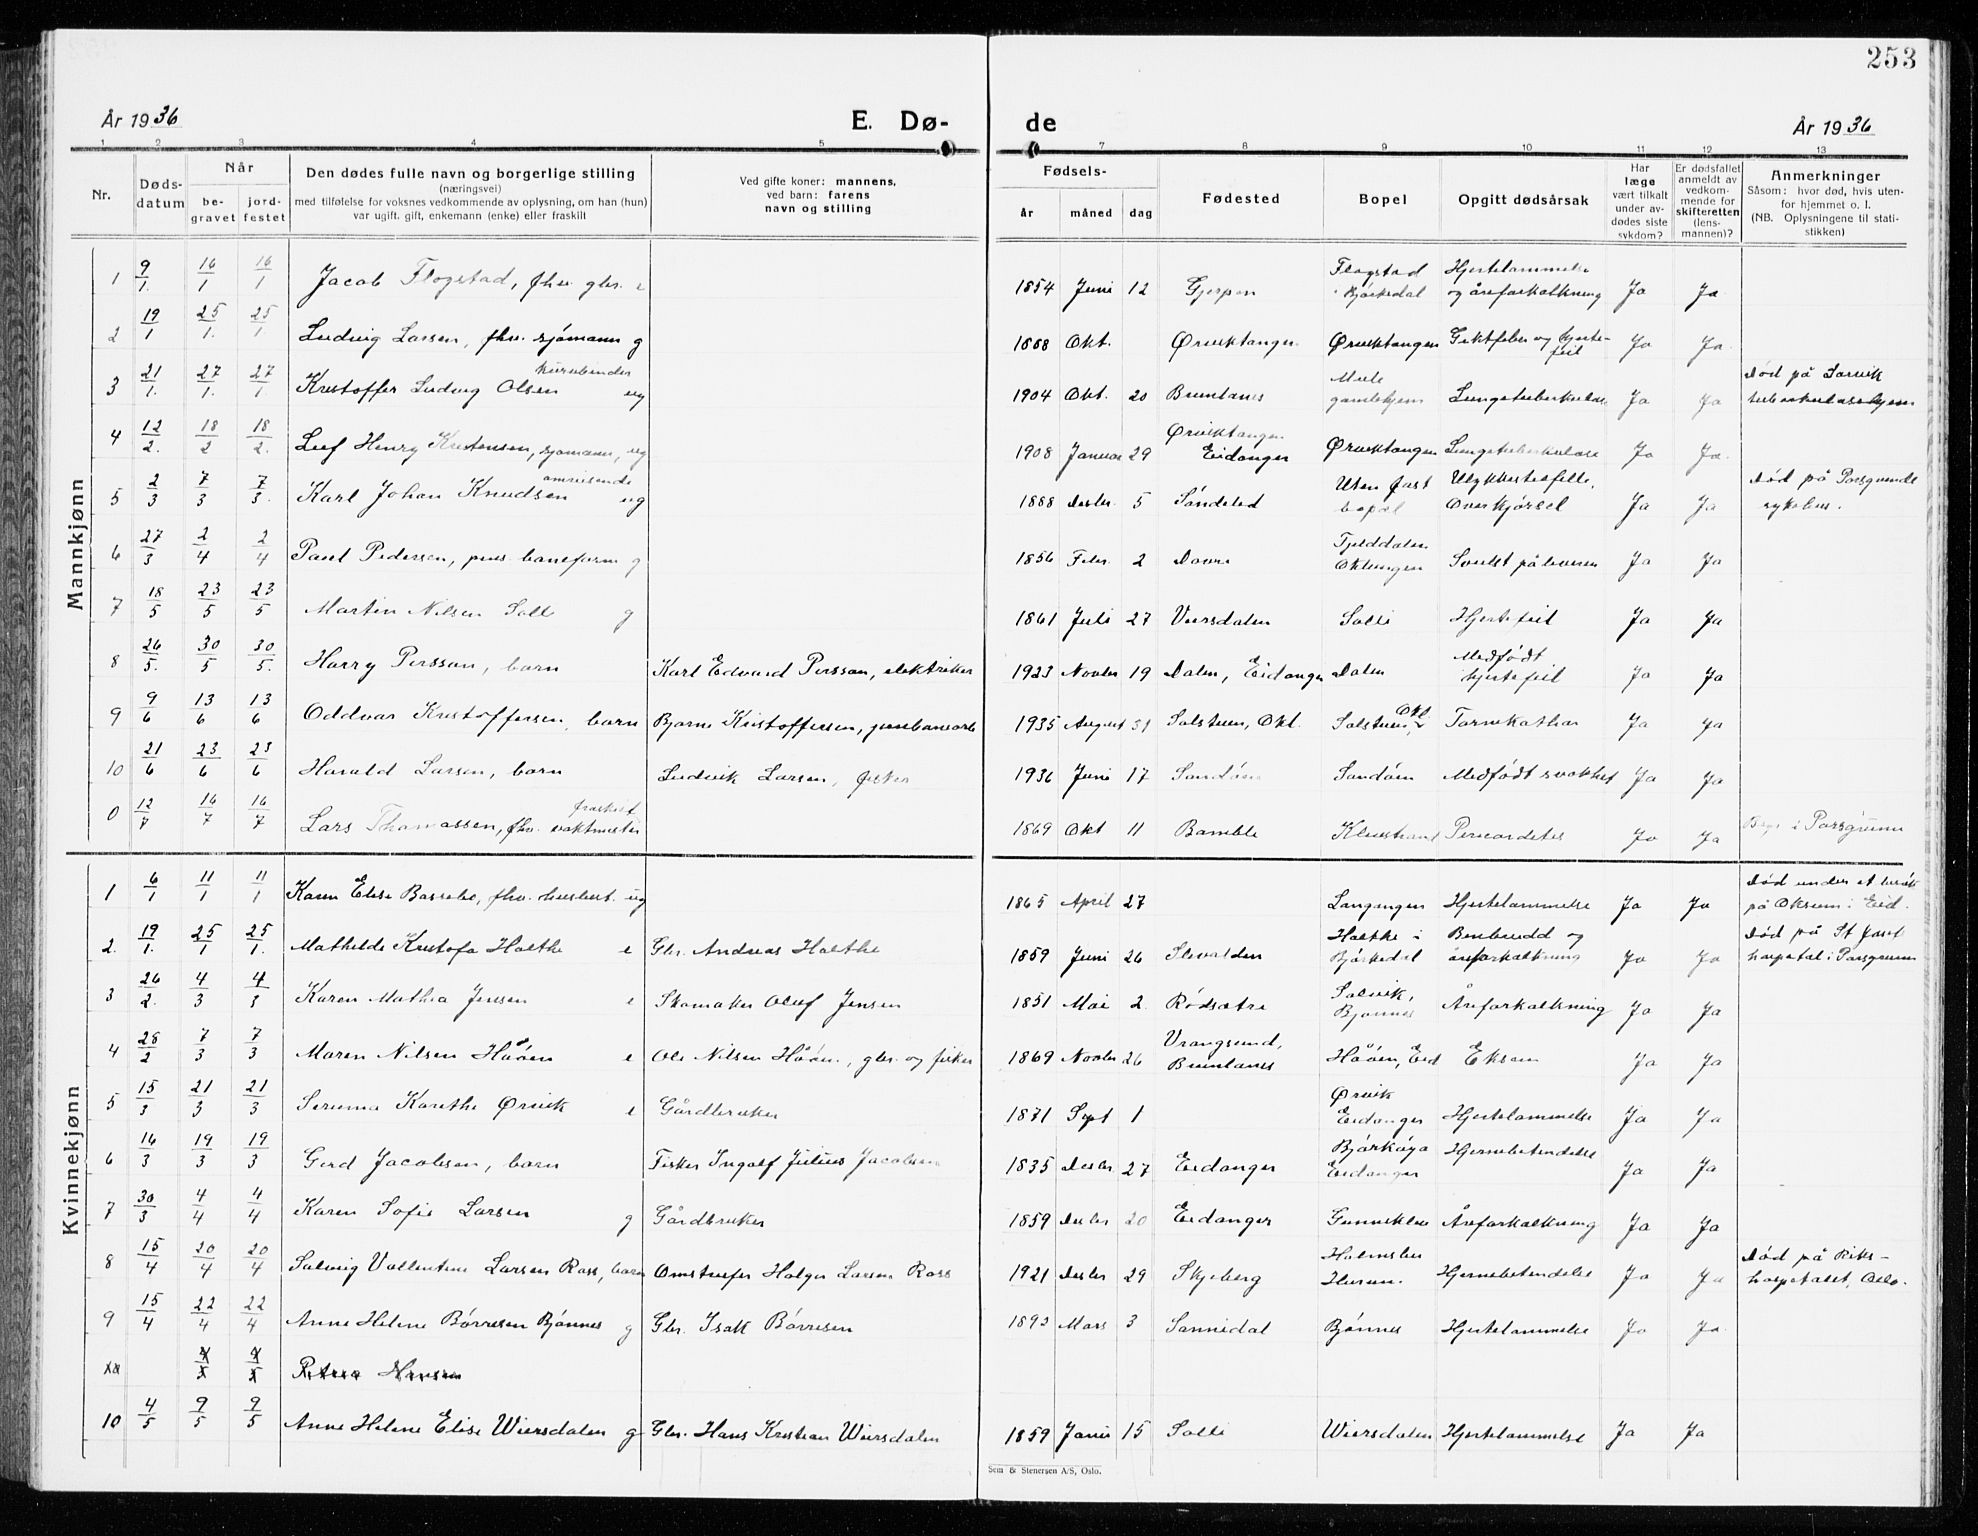 253
År 1936
E. Dø-
de
År 1936
1 2 3 4 5 7 8 9 10 11 12 13
Nr.
Døds-
datum
Når
be-
gravet
jord-
festet
Den dødes fulle navn og borgerlige stilling
(næringsvei)
med tilføielse for voksnes vedkommende av oplysning, om han (hun)
var ugift, gift, enkemann (enke) eller fraskilt
Ved gifte koner: mannens,
ved barn: farens
navn og stilling
Fødsels-
år måned dag
Fødested
Bopel
Opgitt dødsårsak
Har
læge
vært tilkalt
under av-
dødes siste
sykdom?
Er dødsfallet
anmeldt av
vedkom-
mende for
skifteretten
(lens-
mannen)?
Anmerkninger
Såsom: hvor død, hvis uten-
for hjemmet o. l.
(NB. Oplysningene til stati-
stikken)
Mannkjønn
1 9/1. 16/1 16/1 Jacob Flogstad, fhv. gbr. e 1854 Juni 12 Gjerpen Flogstad i Bjørkedal Hjertelammelse og åreforkalkning Ja Ja
2 19/1 25/1. 25/1. Ludvig Larsen, fhv. sjømann g 1888 Okt. Ørviktangen Ørviktangen Giktfeber og hjerte-feil Ja Ja
3 21/1. 27/1. 27/1. Kristoffer Ludvig Olsen kurvbinder ug 1904 Okt. 20 Brunlanes gamlehjem Lungetuberkulose Ja Ja Død på Larvik tuberkulosehjem
4 12/2. 18/2 18/2. Leif Henry Kristensen, sjømann, ug 1908 Januar 29 Ørviktangen Eidanger Ørviktangen Lungetuberkulose Ja Ja
5 2/3 7/3 7/3. Karl Johan Knudsen omreisende ug 1888 Desbr. 5 Søndeled Uten fast bopel Ulykkestilfelle, Overkjørsel Ja Ja Død på Porsgrunds sykehus.
6 27/3 2/4 2/4 Paul Pedersen, pens. baneform g 1856 Febr. 2 Dovre Tjelddalen Oklungen Svulst på leveren Ja Ja
7 18/5 23/5 23/5 Martin Nilsen Solli g 1861 Juli 27 Viersdalen Solli Hjertefeil Ja Ja
8 26/5. 30/5 30/5. Harry Persson, barn Karl Edvard Persson, elektriker 1923 Novbr 19 Dalen, Eidanger Dalen Medfødt hjertefeil Ja Ja
9 9/6 13/6 13/6 Oddvar Kristoffersen, barn Bjarne Kristoffersen, jernbanearb 1935 August 31 Solstuen, Okl. Solstuen, Okl. Tarmkatharr Ja Ja
10 21/6 23/6 23/6 Harald Larsen, barn Ludvik Larsen, fisker 1936 Juni 17 Sandøen Sandøen Medfødt svakhet Ja Ja
0 12/7 16/7 16/7 Lars Thomassen, fhv. vaktmester fraskilt 1869 Okt 11 Bamble Klevstrand Pericarditis Ja Ja Begr i Porsgrunn
Kvinnekjønn
1 6/1 11/1 11/1 Karen Elise Bassebo, fhv. husbest. ug 1865 April 27 Langangen Hjertelammelse Ja Ja Død under et besøk på Oksum i Eid.
2. 19/1. 25/1 25/1. Mathilde Kristofa Holthe e Gbr. Andreas Holthe 1859 Juni 26 Stevalden Holthe i Bjørkedal Benbrudd og åreforkalkning Ja Ja Død på St Josef hospetal i Porsgrunn
3 26/2. 4/3 4/3 Karen Mathea Jensen e Skomaker Oluf Jensen 1851 Mai 2. Rødsætre Solvik, Bjønnes Åreforkalkning Ja Ja
4 28/2 7/3 7/3 Maren Nilsen Håøen e Ole Nilsen Håøen, gbr. og fisker 1869 Novbr 26 Vrangsund, Brunlanes Håøen, Eid Eksem Ja Ja
5 15/3 21/3 21/3 Serinna Karethe Ørvik e Gårdbruker 1871 Sept 1 Ørvik Eidanger Hjertelammelse Ja Ja
6 16/3 19/3 19/3 Gerd Jacobsen, barn Fisker Ingolf Julius Jacobsen 1835 Desbr 27 Eidanger Bjørkøya Eidanger Hjernebetendelse Ja Ja
7 30/3 4/4 4/4 Karen Sofie Larsen g Gårdbruker 1859 Desbr 20 Eidanger Gunneklev Åreforkalkning Ja Ja
8 15/4 20/4 20/4 Solveig Vallentine Larsen Ross, barn Omstreifer Holger Larsen Ross 1921 Desbr 29 Skjeberg Hjernebetendelse Ja Ja Død på Riks-hospetalet, Oslo.
9 15/4 22/4 22/4 Anne Helene Børresen Bjønnes g Gbr. Isak Børresen 1892 Mars 3 Sannidal Bjønnes Hjertelammelse Ja Ja
Petrea Hansen
10 4/5 9/5 9/5 Anne Helene Elise Wiersdalen g Gbr. Hans Kristian Wiersdalen 1859 Juni 15 Solli Wiersdalen Hjertelammelse Ja Ja
Sem & Stenersen A/S, Oslo.